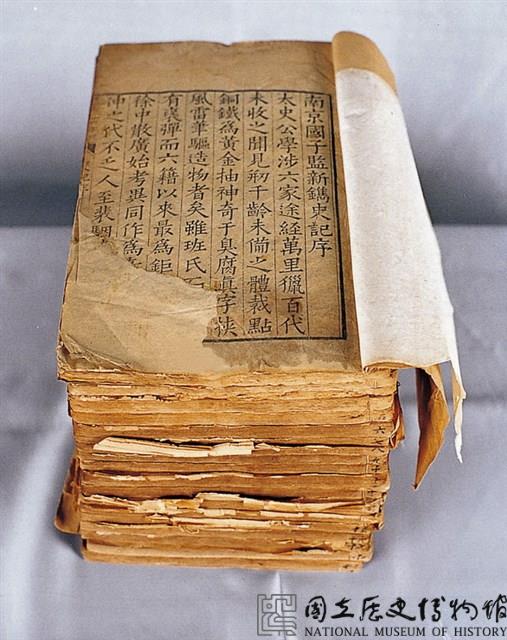 南京國子監新鐫史記序
太史公學涉六家途經萬里獵百代
未收之聞見刱千齡未俻之體裁點
銅鐵爲黃金抽神奇于臭腐眞字挾
風雷筆驅造物者矣雖班氏
有彈而六籍以來最爲鉅
徐中散廣始考異同作爲
神之代不乏人至裴駰
國立歷史博物館
NATIONAL MUSEUM OF HISTORY